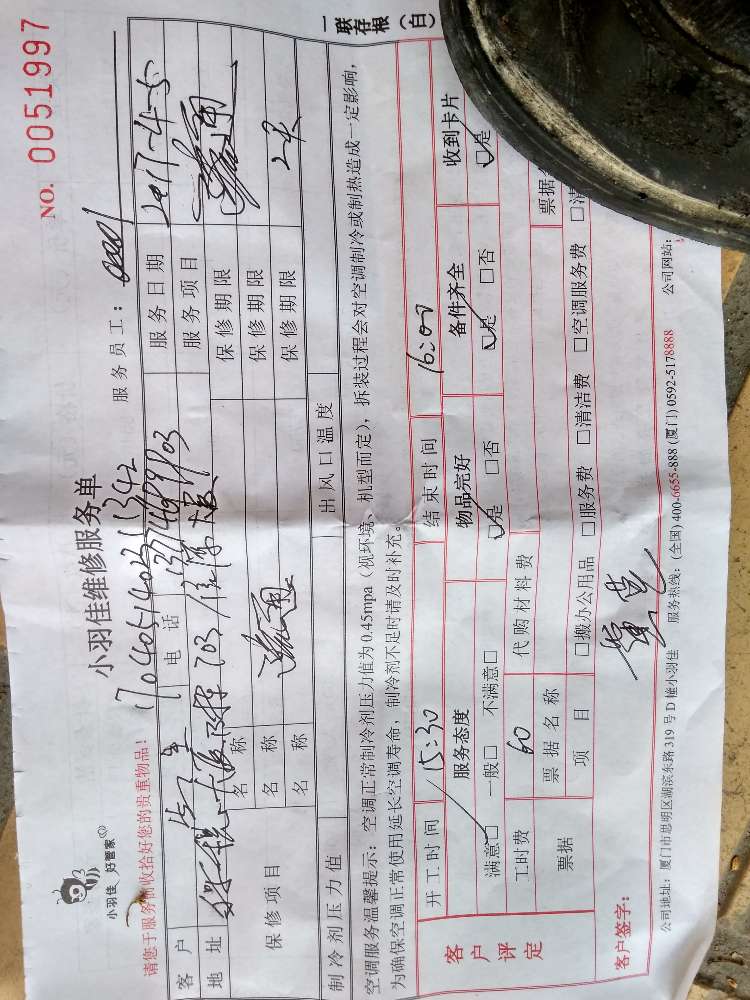 NO. 0051997
一联存根（白）
小羽佳 好管家
小羽佳维修服务单
请您于服务前收拾好您的贵重物品！
服务员工：
17040514023 1342
客户
电话
服务日期 2017-4-5
地址 703
服务项目
保修项目
名称
保修期限
名称
保修期限
名称
保修期限
制冷剂压力值
出风口温度
空调服务温馨提示：空调正常制冷剂压力值为0.45mpa（视环境、机型而定），拆装过程会对空调制冷或制热造成一定影响，
为确保空调正常使用延长空调寿命，制冷剂不足时请及时补充。
客户评定
开工时间 15:30
结束时间 16:00
服务态度
物品完好
备件齐全
收到卡片
满意□ 一般□ 不满意□
□是 □否
□是 □否
□是
工时费 60
代购材料费
票据
票据名称
票据
项目
□搬办公用品 □服务费 □清洁费 □空调服务费 □清
客户签字：
公司地址：厦门市思明区湖滨东路319号D幢小羽佳 服务热线：(全国) 400-6655-888 (厦门) 0592-5178888 公司网站：